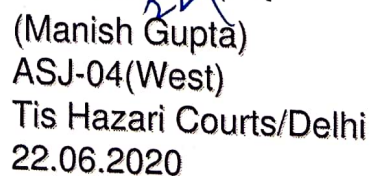 (Manish Gupta)
ASJ-04(West)
Tis Hazari Courts/Delhi
22.06.2020